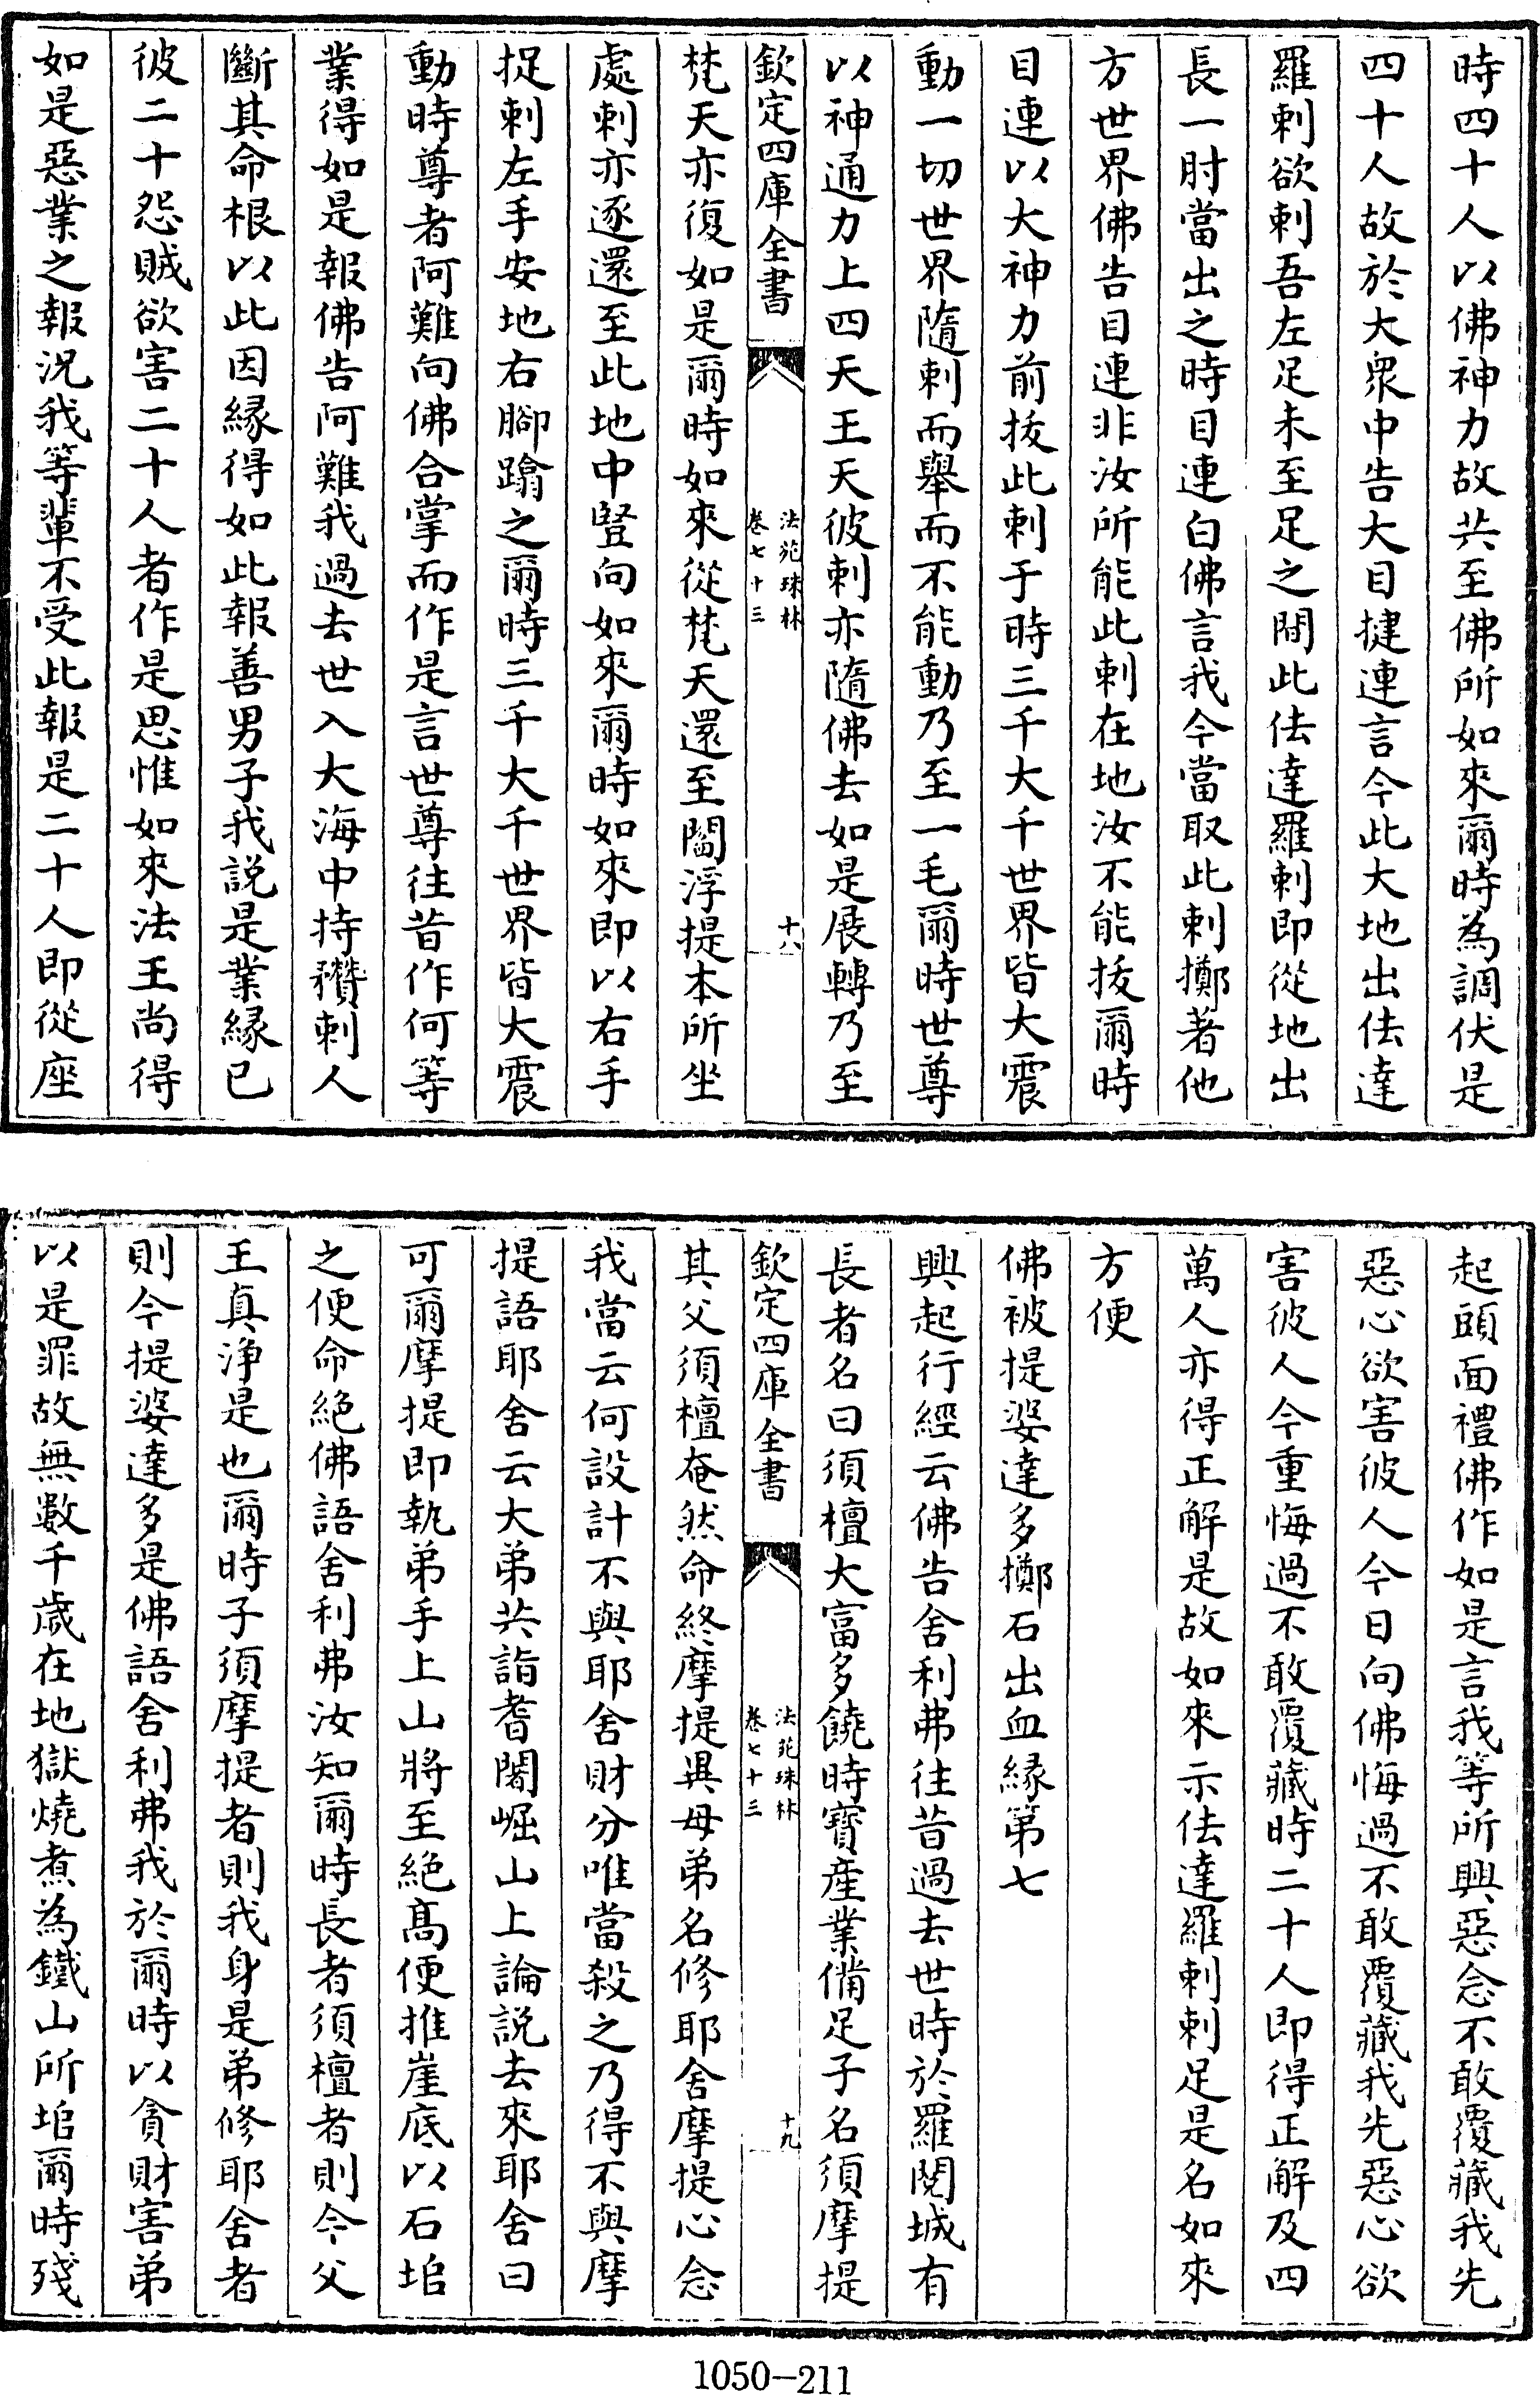 時四十人以佛神力故共至佛所如來爾時為調伏是
四十人故於大衆中告大目揵連言今此大地出佉達
羅刺欲刺吾左足未至足之間此佉達羅刺即從地出
長一肘當出之時目連白佛言我今當取此刺擲著他
方世界佛告目連非汝所能此刺在地汝不能拔爾時
目連以大神力前拔此刺于時三千大千世界皆大震
動一切世界隨刺而舉而不能動乃至一毛爾時世尊
以神通力上四天王天彼刺亦隨佛去如是展轉乃至
欽定四庫全書 法苑珠林 卷七十三 十八
梵天亦復如是爾時如來從梵天還至閻浮提本所坐
處刺亦逐還至此地中豎向如來爾時如來即以右手
捉刺左手安地右腳蹹之爾時三千大千世界皆大震
動時尊者阿難向佛合掌而作是言世尊往昔作何等
業得如是報佛告阿難我過去世入大海中持穳刺人
斷其命根以此因緣得如此報善男子我説是業緣已
彼二十怨賊欲害二十人者作是思惟如來法王尚得
如是惡業之報況我等輩不受此報是二十人即從座
起頭面禮佛作如是言我等所興惡念不敢覆藏我先
惡心欲害彼人今日向佛悔過不敢覆藏我先惡心欲
害彼人今重悔過不敢覆藏時二十人即得正解及四
萬人亦得正解是故如來示佉達羅刺刺足是名如來
方便
佛被提婆達多擲石出血緣第七
興起行經云佛告舍利弗往昔過去世時於羅閱城有
長者名曰須檀大富多饒時寶產業備足子名須摩提
欽定四庫全書 法苑珠林 卷七十三 十九
其父須檀奄然命終摩提異母弟名修耶舍摩提心念
我當云何設計不與耶舍財分唯當殺之乃得不與摩
提語耶舍云大弟共詣耆闍崛山上論説去來耶舍曰
可爾摩提即執弟手上山將至絕高便推崖底以石㙛
之便命絕佛語舍利弗汝知爾時長者須檀者則今父
王真淨是也爾時子須摩提者則我身是弟修耶舍者
則今提婆達多是佛語舍利弗我於爾時以貪財害弟
以是罪故無數千歲在地獄燒煮為鐵山所㙛爾時殘
1050-211